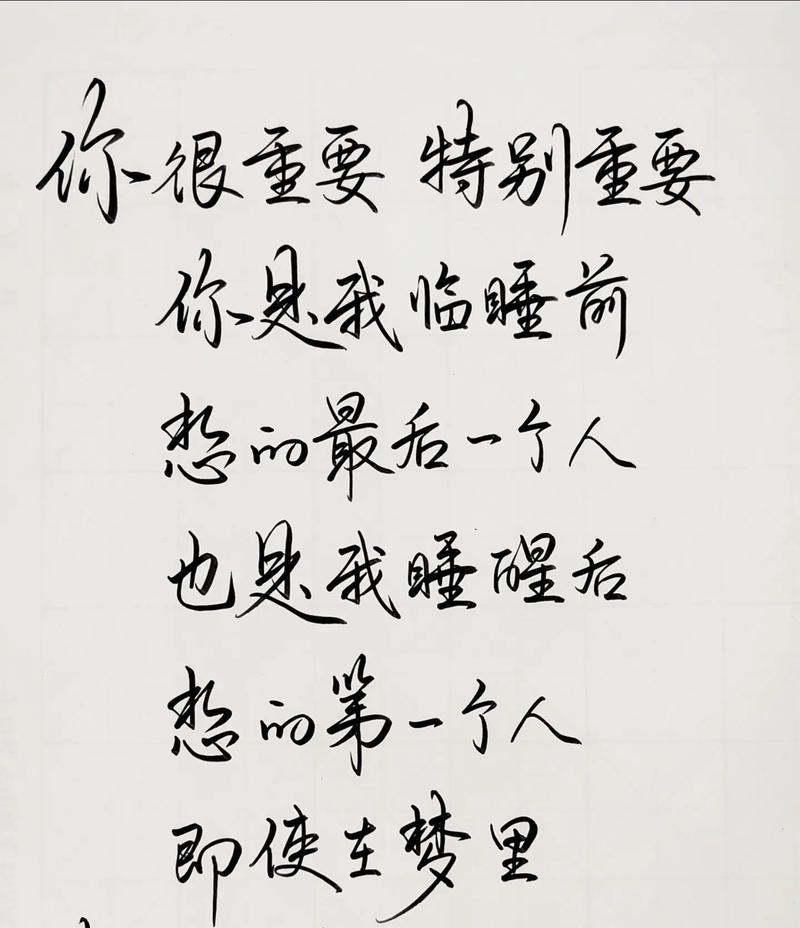 你很重要 特别重要
你是我临睡前
想的最后一个人
也是我睡醒后
想的第一个人
即使在梦里